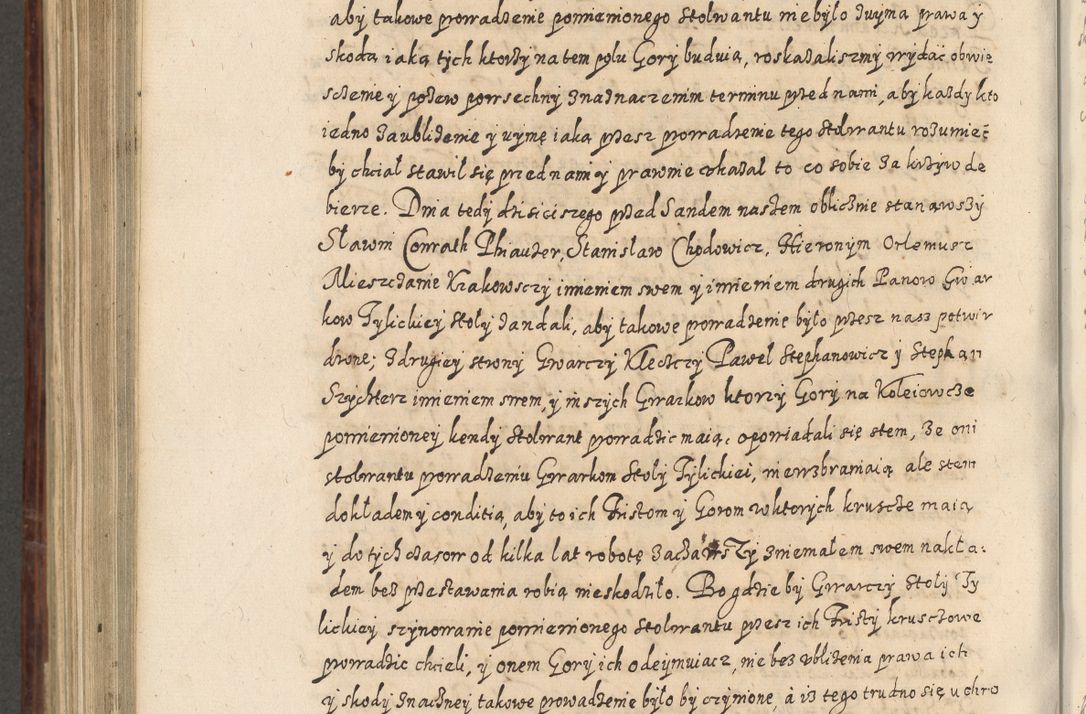 aby takowe prowadzenie pomienionego stolwantu nie było z uymą prawa y
skodą iaką tych ktorzy na tem polu Gory buduią, roskazalismy wydać obwie
sczenie y pozew powsechny z naznaczeniem terminu przed nami, aby kazdy kto
iedno za ublizenie y uymę iaką przesz prowadzenie tego stolwantu rozumieć
by chciał stawił się przed nami y prawnie vkazał to co sobie za krzywde
bierze. Dnia tedy dzisieiszego przed Sandem naszem oblicznie stanąwszy
Sławni Conrath Phiauzer, Stanisław Chodowicz, Hieronym Orlemusz
Miesczanie Krakowsczy imieniem swem y imieniem drugich Panow Gwar
kow Tylickiey Stoly zandali, aby takowe prowadzenie było przesz nasz potwir
dzone; z drugiey strony Gwarczy Kleszczy Paweł Stephanowicz y Stephan
Szychterz imieniem swem, y inszych Gwarkow ktorzy Gory na Koleiowcze
pomienioney kendy stolwant prowadzic maią, opowiadali się stem, ze oni
stolwantu prowadzeniu Gwarkom Stoly Tylickiei, niewzbraniaią ale stem
dokładem y conditią, aby to ich Fristom y Gorom w ktorych kruscze maią
y do tych czasow od kilka lat robotę zacząwszy z niemałem swem nakła:
dem bez przestawania robią nieskodziło. Bo gdzie by Gwarczy Stoly Ty
lickiey szynowanie pomienionego stolwantu przesz ich Fristy kruszczowe
prowadzic chcieli, y onem Gory ich odeymuiacz, nie bez vblizenia prawa ich
y skody znaczney takowe prowadzenie było by czynione, à iz tego trudno się uchro